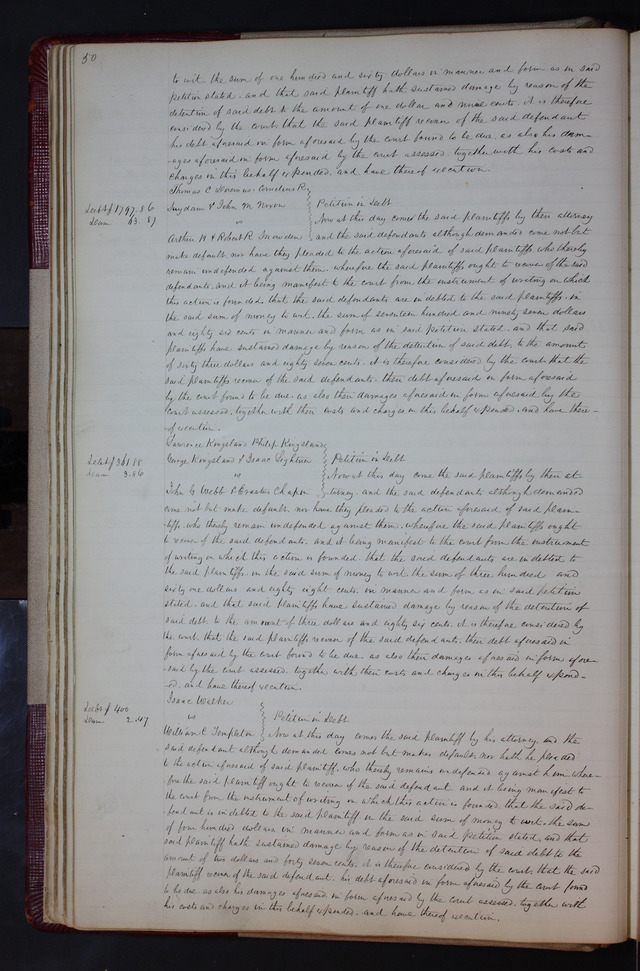 50
to wit the sum of one hundred and sixty dollars in manner and form as in said
petition stated. and that said plaintiff hath sustained damage by reason of the
detention of said debt to the amount of one dollar and nine cents. it is therefore
considered by the court that the said plaintiff recover of the said defendant
his debt aforesaid in form aforesaid by the court found to be due. as also his dam-
ages aforesaid in form aforesaid by the court assessed. together with his costs and
charges in this behalf expended. and have thereof execution.
Thomas C Cornelius R
Suydam & John M Nixon
Debt $1797.86
Dam 63.87
Petition in Debt
vs
Now at this day comes the said plaintiffs by their attorney
Arthur H & Robert R. Snowden
and the said defendants although demanded come not but
make default. nor have they pleaded to the action aforesaid of said plaintiffs who thereby
remain undefended against them. wherefore the said plaintiffs ought to recover of the said
defendants. and it being manifest to the court from the instrument of writing on which
this action is founded. that the said defendants are indebted to the said plaintiffs. in
the said sum of money to wit. the sum of seventeen hundred and ninety seven dollars
and eighty six cents in manner and form as in said petition stated. and that said
plaintiffs have sustained damage by reason of the detention of said debt. to the amount
of sixty three dollars and eighty seven cents. it is therefore considered by the court that the
said plaintiffs recover of the said defendants. their debt aforesaid in form aforesaid
by the court found to be due. as also their damages aforesaid in form aforesaid by the
court assessed, together with their costs and charges in this behalf expended. and have there-
of execution.
Lawrence Kingsland Philip Kingsland
George Kingsland & Isaac Lightner
Debt $361.88
Dam 3.86
Petition in Debt
vs
Now at this day come the said plaintiffs by their at-
John C Webb & Erastus Chapin
torney. and the said defendants although demanded
come not but make default. nor have they pleaded to the action aforesaid of said plain-
tiffs. who thereby remain undefended against them. wherefore the said plaintiffs ought
to recover of the said defendants. and it being manifest to the court from the instrument
of writing on which this action is founded. that the said defendants are indebted to
the said plaintiffs. in the said sum of money to wit. the sum of three hundred and
sixty one dollars and eighty eight cents. in manner and form as in said petition
stated. and that said plaintiffs have sustained damage by reason of the detention of
said debt. to the amount of three dollars and eighty six cents. it is therefore considered by
the court. that the said plaintiffs recover of the said defendants. their debt aforesaid in
form aforesaid by the court found to be due. as also their damages aforesaid in form afore-
said by the court assessed. together with their costs and charges in this behalf expend-
ed. and have thereof execution.
Isaac Walker
Debt $400
Dam 2.47
vs
Petition in Debt
William C. Templeton
Now at this day comes the said plaintiff by his attorney. and the
said defendant although demanded comes not but makes default. nor hath he pleaded
to the action aforesaid of said plaintiff. who thereby remains undefended against him. where-
fore the said plaintiff ought to recover of the said defendant. and it being manifest to
the court from the instrument of writing on which this action is founded. that the said de-
fendant is indebted to the said plaintiff in the said sum of money to wit. the sum
of four hundred dollars in manner and form as in said petition stated. and that
said plaintiff hath sustained damage by reason of the detention of said debt to the
amount of two dollars and forty seven cents. it is therefore considered by the court. that the said
plaintiff recover of the said defendant. his debt aforesaid in form aforesaid by the court found
to be due. as also his damages aforesaid in form aforesaid by the court assessed. together with
his costs and charges in this behalf expended. and have thereof execution.